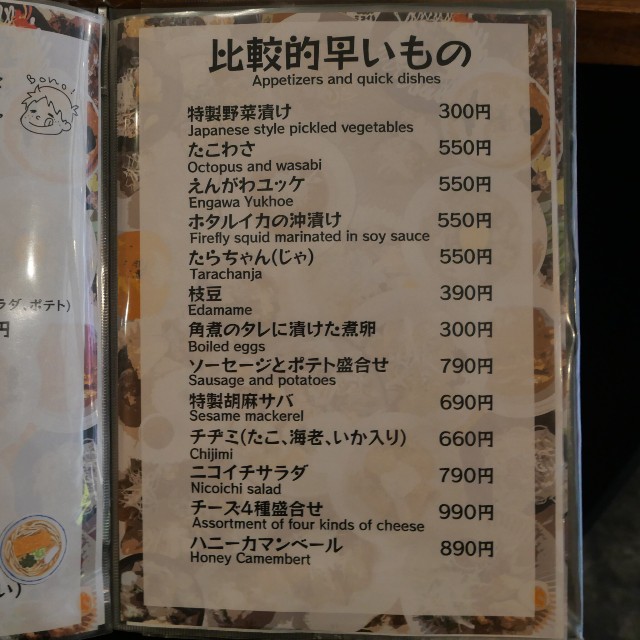 Bonoi
ラダ、ポテト)
円
い)
比較的早いもの
Appetizers and quick dishes
特製野菜漬け 300円
Japanese style pickled vegetables
たこわさ 550円
Octopus and wasabi
えんがわユッケ 550円
Engawa Yukhoe
ホタルイカの沖漬け 550円
Firefly squid marinated in soy sauce
たらちゃん(じゃ) 550円
Tarachanja
枝豆 390円
Edamame
角煮のタレに漬けた煮卵 300円
Boiled eggs
ソーセージとポテト盛合せ 790円
Sausage and potatoes
特製胡麻サバ 690円
Sesame mackerel
チヂミ(たこ、海老、いか入り) 660円
Chijimi
ニコイチサラダ 790円
Nicoichi salad
チーズ4種盛合せ 990円
Assortment of four kinds of cheese
ハニーカマンベール 890円
Honey Camembert